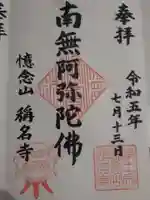 奉拝
令和五年
七月十三日
南無阿弥陀佛
憶念山
稱名寺